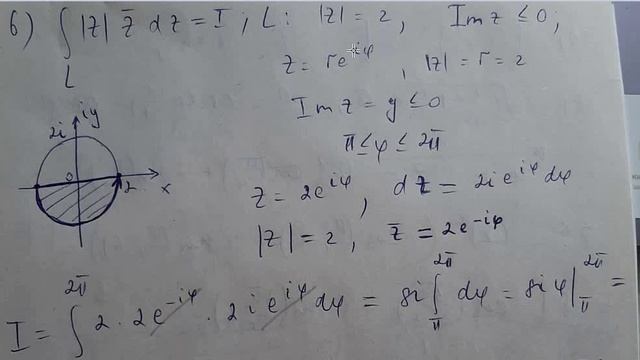 б) ∫_L |z| z̄ dz = I ; L: |z| = 2, Im z ≤ 0;
z = re^{iφ}, |z| = r = 2
Im z = y ≤ 0
π ≤ φ ≤ 2π
2i iy
0 2 x
z = 2e^{iφ}, dz = 2ie^{iφ}dφ
|z| = 2, z̄ = 2e^{-iφ}
I = ∫_π^{2π} 2 · 2e^{-iφ} · 2ie^{iφ}dφ = 8i ∫_π^{2π} dφ = 8iφ|_π^{2π} =